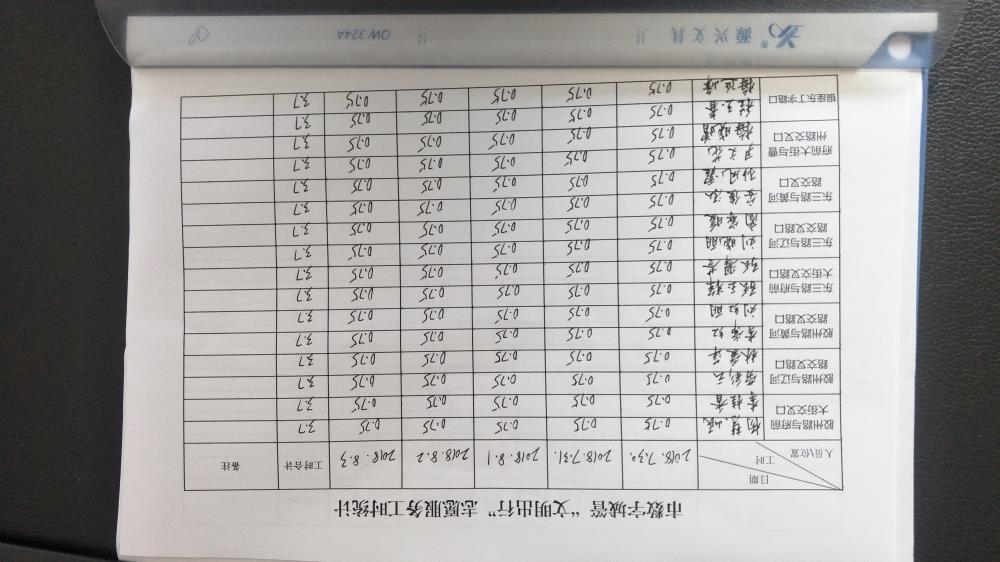 市数字城管“文明出行”志愿服务工时统计
日期
工时
人员/位置
2018.7.30 2018.7.31. 2018.8.1 2018.8.2 2018.8.3 工时合计 备注
胶州路与府前 0.75 0.75 0.75 0.75 0.75 3.7
大街交叉口 李桂香 0.75 0.75 0.75 0.75 0.75 3.7
胶州路与辽河 0.75 0.75 0.75 0.75 0.75 3.7
路交叉口 0.75 0.75 0.75 0.75 0.75 3.7
胶州路与黄河 李常红 0.75 0.75 0.75 0.75 0.75 3.7
路交叉口 刘红明 0.75 0.75 0.75 0.75 0.75 3.7
东三路与府前 张玉程 0.75 0.75 0.75 0.75 0.75 3.7
大街交叉路口 0.75 0.75 0.75 0.75 0.75 3.7
东三路与辽河 刘晓明 0.75 0.75 0.75 0.75 0.75 3.7
路交叉路口 0.75 0.75 0.75 0.75 0.75 3.7
东三路与黄河 0.75 0.75 0.75 0.75 0.75 3.7
路交叉口 孙凤霞 0.75 0.75 0.75 0.75 0.75 3.7
府前大街与曹 尹文花 0.75 0.75 0.75 0.75 0.75 3.7
州路交叉口 梅晓霜 0.75 0.75 0.75 0.75 0.75 3.7
程玉春 0.75 0.75 0.75 0.75 0.75 3.7
银座东丁字路口 梅延峰 0.75 0.75 0.75 0.75 0.75 3.7
源兴文具 QW324A